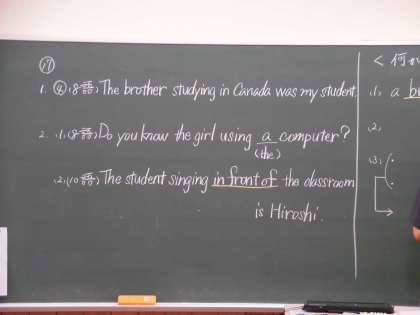 ⑰
1. (4)(8語) The brother studying in Canada was my student.
2. (1)(8語) Do you know the girl using a computer?
(the)
(2)(10語) The student singing in front of the classroom
is Hiroshi.
< 何
(1) a
(2)
(3)